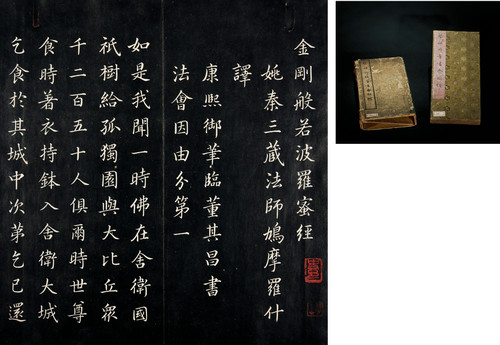 金剛般若波羅蜜經
姚秦三藏法師鳩摩羅什
譯
康熙御筆臨董其昌書
法會因由分第一
如是我聞一時佛在舍衛國
祇樹給孤獨園與大比丘眾
千二百五十人俱爾時世尊
食時著衣持鉢入舍衛大城
乞食於其城中次第乞已還